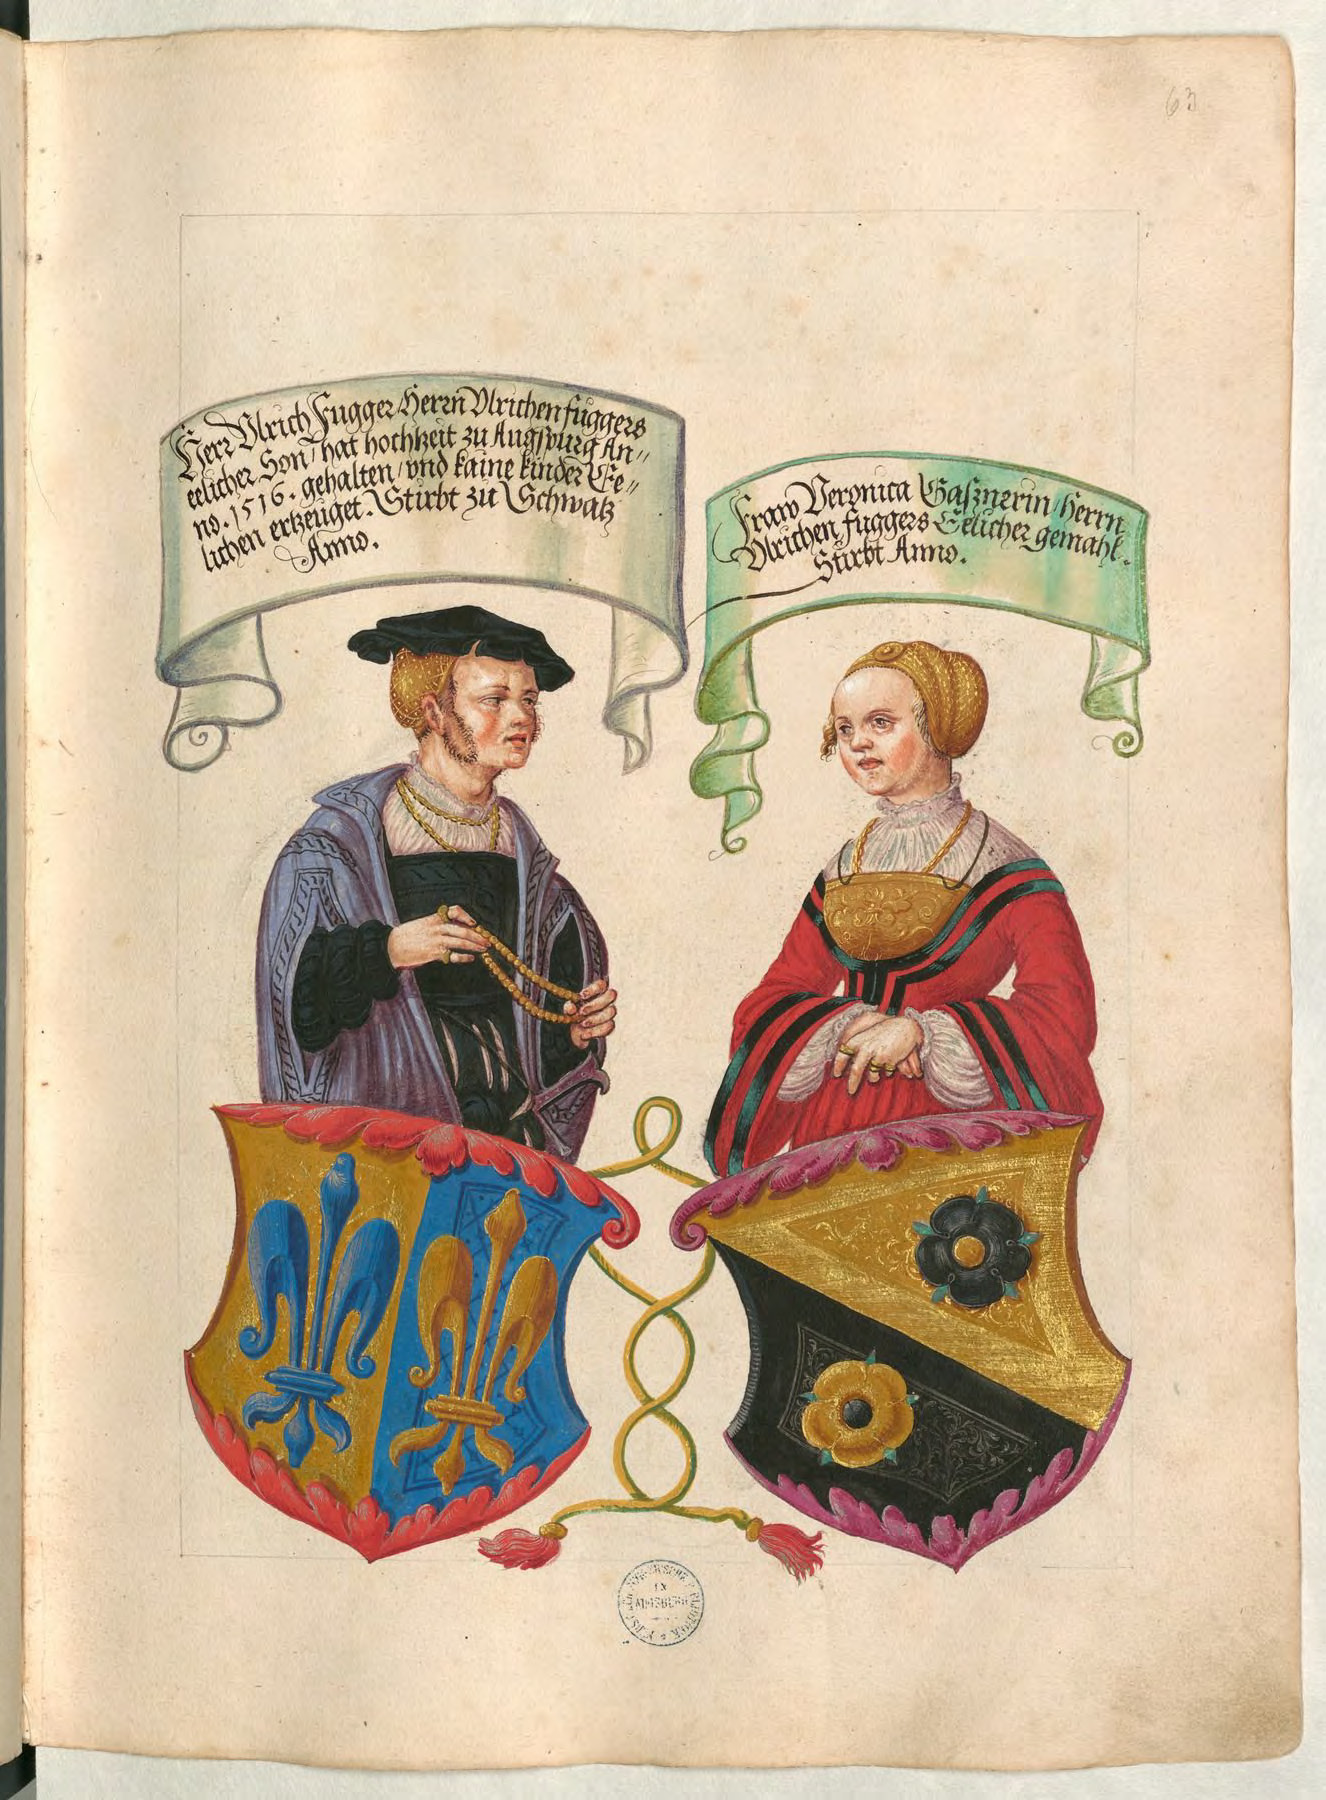 63
Herr Vlrich Fugger Herrn Vlrichen fuggers
eelicher Son / hat hochzeit zu Augspurg An„
no. 1516. gehalten / vnd kaine kinder Ee„
lichen ertzeuget. Stirbt zu Schwatz
Anno.
Fraw Veronica Gaßnerin / herrn
Vlrichen fuggers Eelicher gemahl.
Stirbt Anno.
IN
AUGSBURG